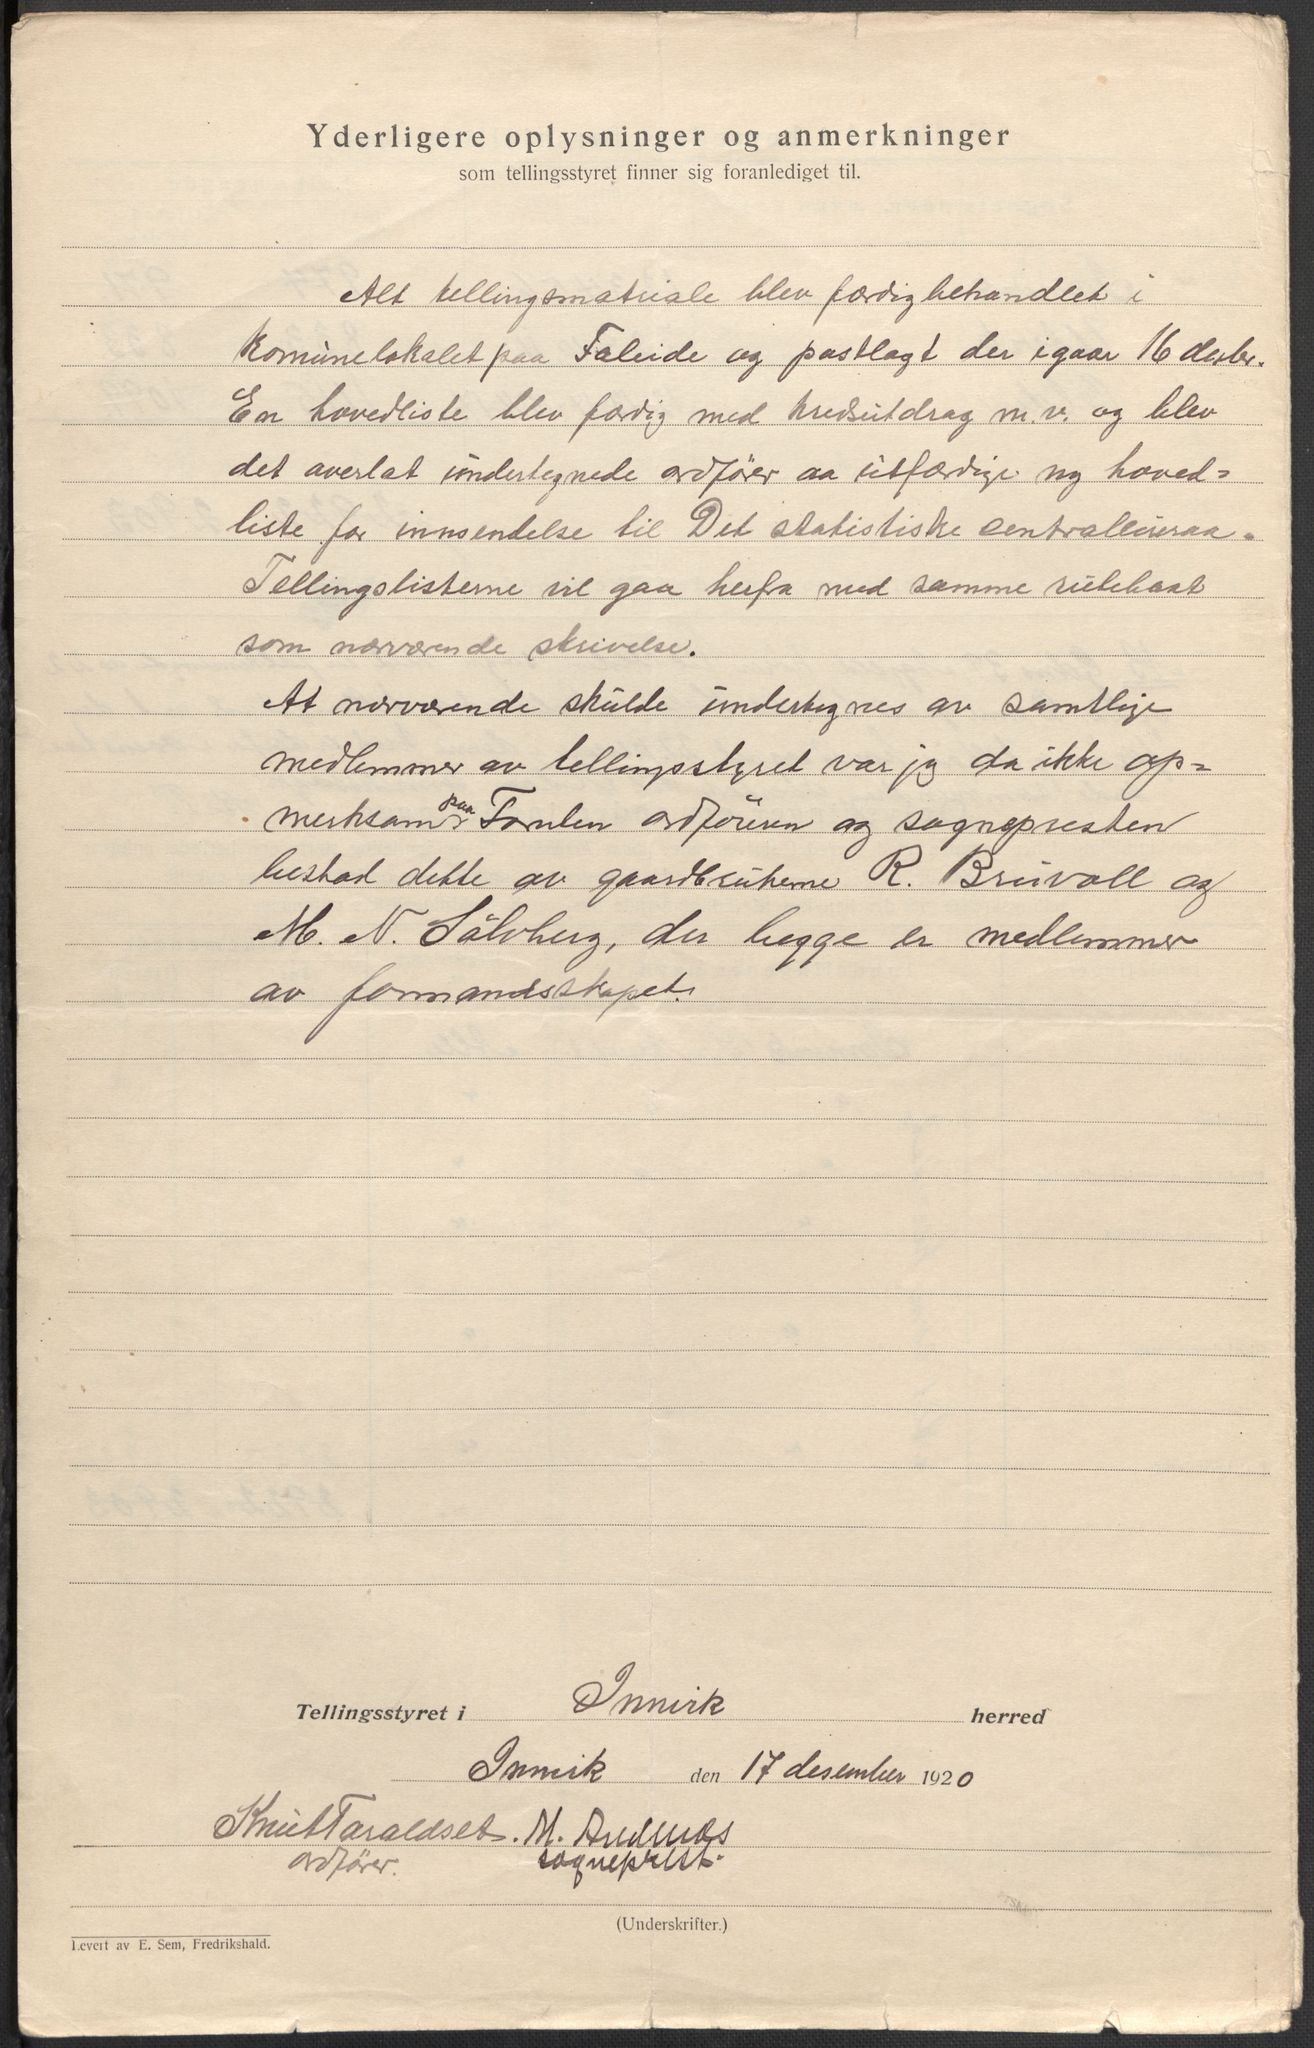 Yderligere oplysninger og anmerkninger
som tellingsstyret finner sig foranlediget til.
Alt tellingsmateriale blev færdigbehandlet i
komunelokalet paa Faleide og postlagt der igaar 16 desbr.
En hovedliste blev færdig med kredsutdrag m.v. og blev
det overlat undertegnede ordfører aa utfærdige ny hoved=
liste for innsendelse til Det statistiske centralbureau.
Tellingslisterne vil gaa herfra med samme rutebaat
som nærværende skrivelse.
At nærværende skulde undertegnes av samtlige
medlemmer av tellingsstyret var jeg da ikke op=
merksam paa. Foruten ordføreren og sognepresten
bestod dette av gaardbrukerne R. Bruvoll og
M. N. Sølvberg, der begge er medlemmer
av formandsskapet.
Tellingsstyret i Innvik herred
Innvik den 17 desember 1920
Knut Taraldset. M. Andenæs
ordfører. sogneprest.
(Underskrifter.)
Levert av E. Sem, Fredrikshald.